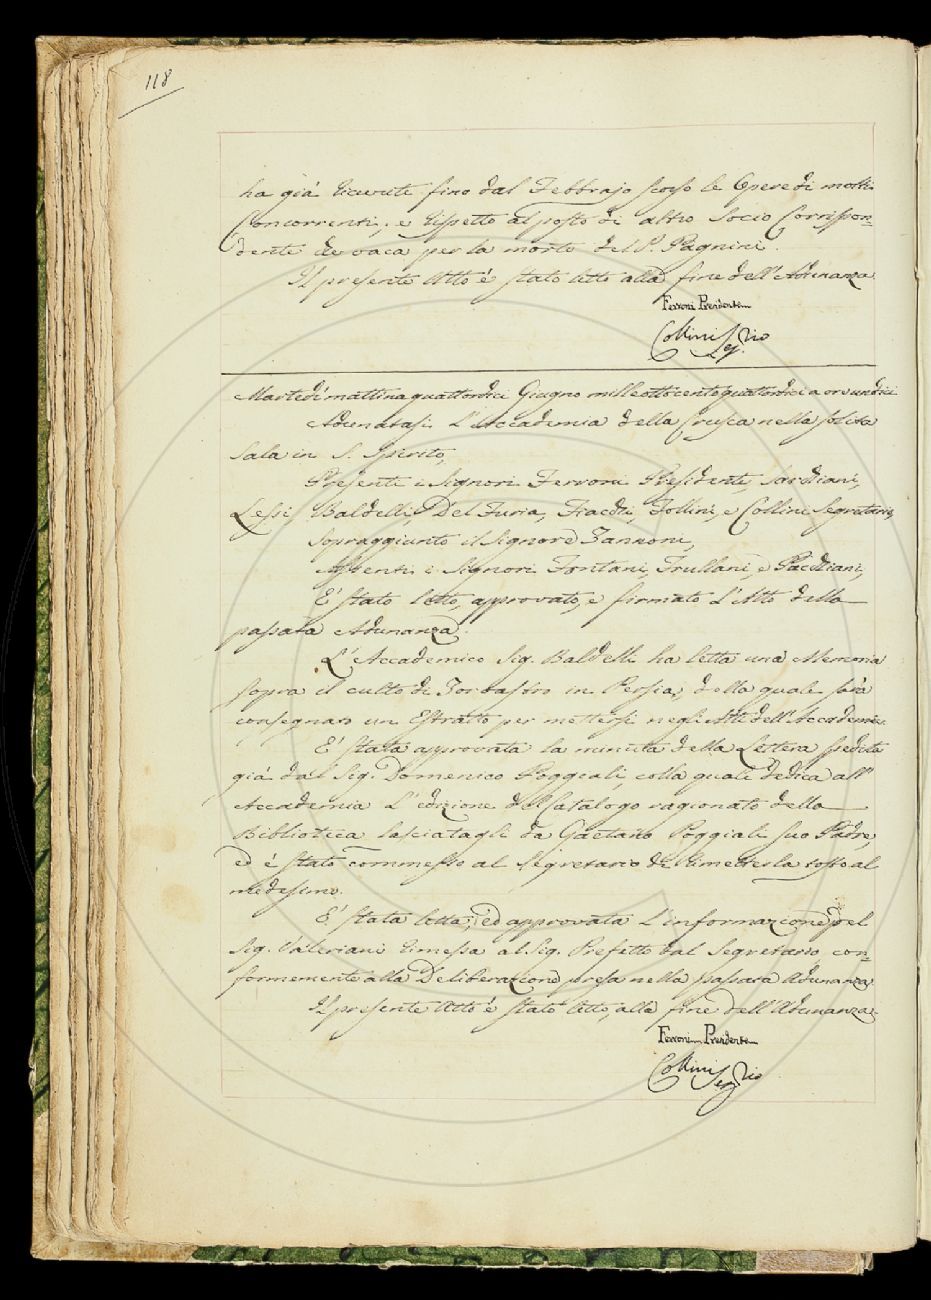 118
ha già ricevute fino dal Febbrajo scorso le Opere di molti
Concorrenti, e rispetto al posto di altro Socio Corrispon=
dente che vaca per la morte del P. Pagnini.
Il presente Atto è stato letto alla fine dell'Adunanza.
Ferroni Presidente
Collini Seg.rio
Martedì mattina quattordici Giugno milleottocentoquattordici a ore undici
Adunatasi l'Accademia della Crusca nella solita
Sala in S. Spirito,
Presenti i Signori Ferroni Presidente, Sarchiani,
Lessi, Baldelli, Del Furia, Fiacchi, Follini, e Collini Segretario,
Sopraggiunto il Signore Zannoni,
Assenti i Signori Fontani, Frullani, e Pacchiani,
E' stato letto, approvato, e firmato l'Atto della
passata Adunanza.
L'Accademico Sig. Baldelli ha letta una Memoria
sopra il culto di Zoroastro in Persia, della quale sarà
consegnato un Estratto per mettersi negli Atti dell'Accademia.
E' stata approvata la minuta della Lettera spedita
già dal Sig. Domenico Poggiali, colla quale dedica all'
Accademia l'edizione del Catalogo ragionato della
Biblioteca lasciatagli da Gaetano Poggiali suo Padre,
ed è stato commesso al Segretario di rimettersla tosto al
medesimo.
E' stata letta, ed approvata l'informazione pel
Sig. Valeriani rimessa al Sig. Prefetto dal Segretario con=
formemente alla Deliberazione presa nella passata Adunanza.
Il presente Atto è stato letto alla fine dell'Adunanza.
Ferroni Presidente
Collini Seg.rio